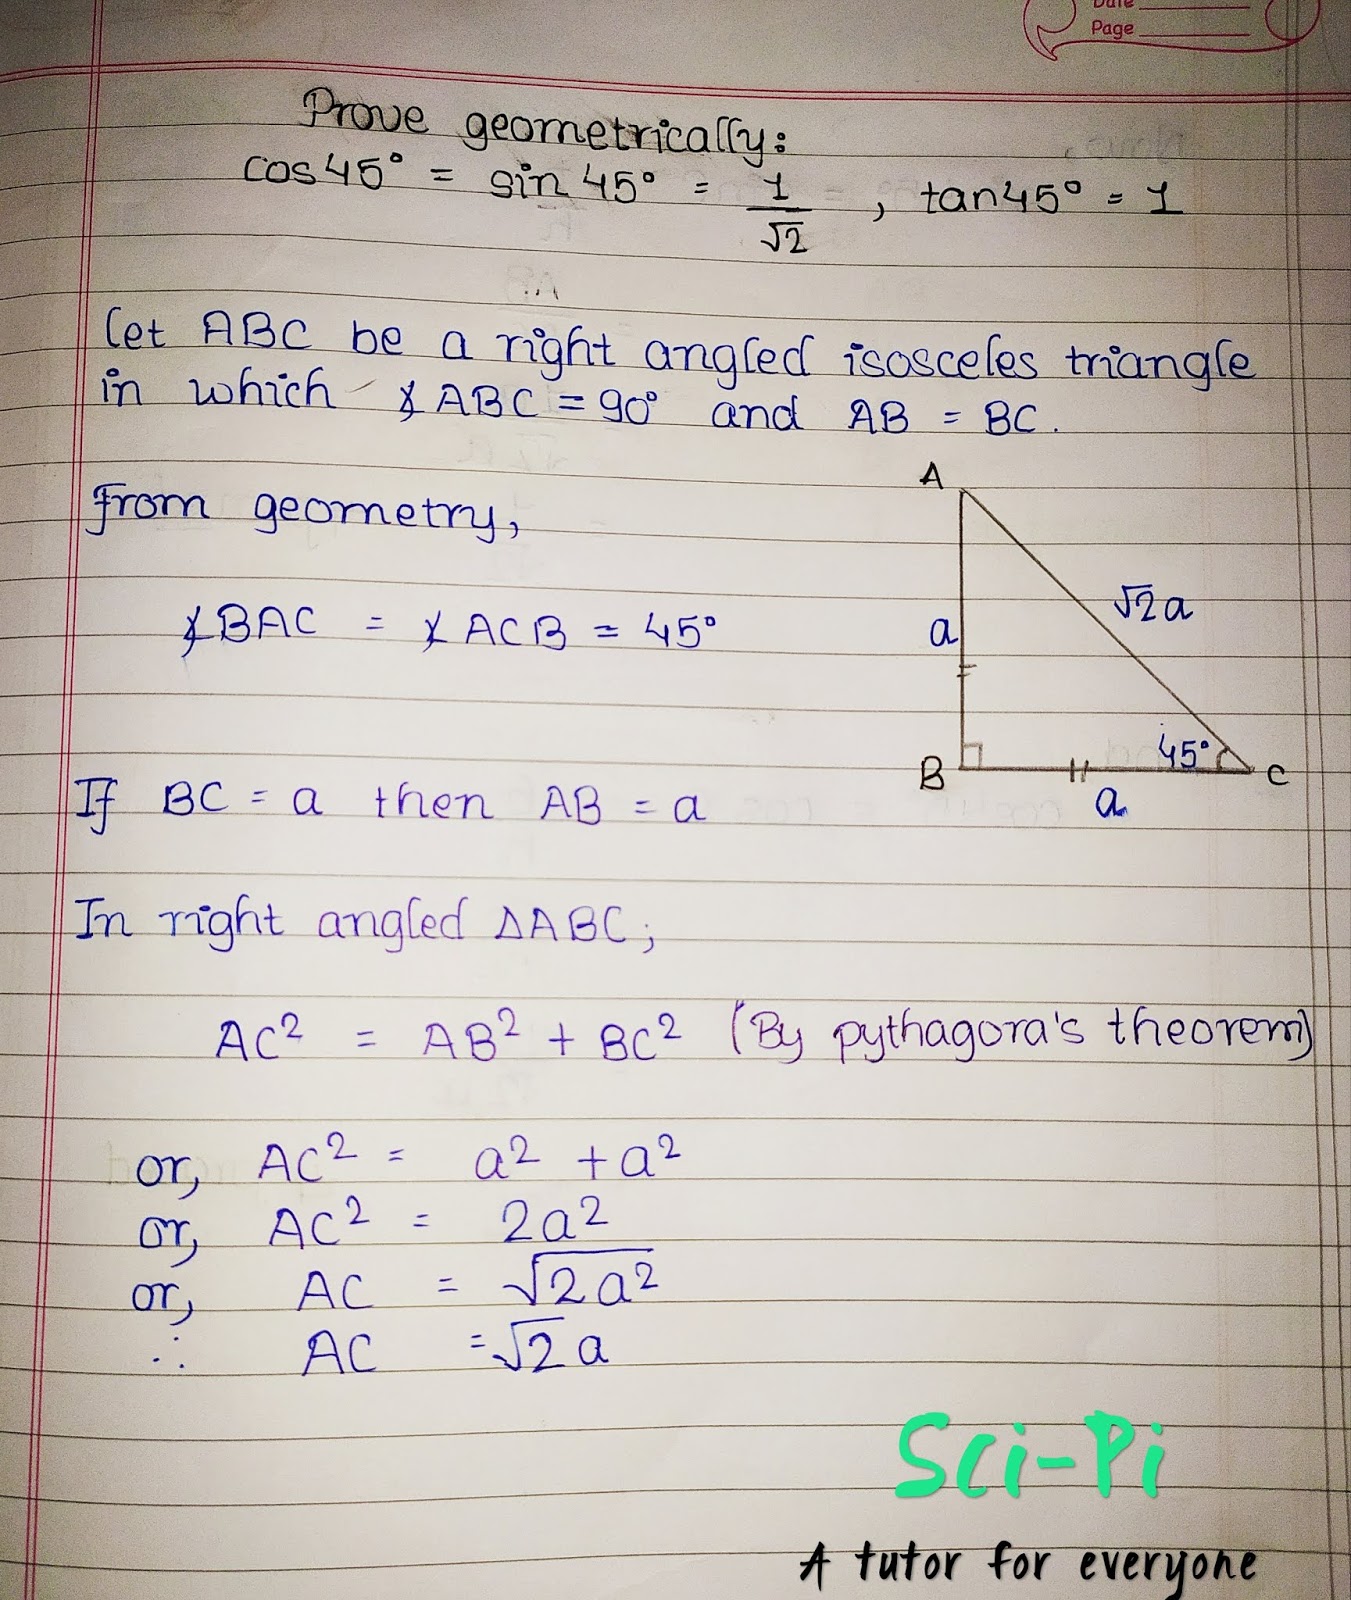 Date
Page
Prove geometrically:
cos45° = sin 45° = 1/√2 , tan45° = 1
let ABC be a right angled isosceles triangle
in which ∡ABC = 90° and AB = BC.
from geometry,
∡BAC = ∡ACB = 45°
A
√2a
a
45°
B
C
a
If BC = a then AB = a
In right angled ΔABC;
AC² = AB² + BC² (By pythagora's theorem)
or, AC² = a² + a²
or, AC² = 2a²
or, AC = √2a²
∴ AC = √2 a
Sci-Pi
A tutor for everyone